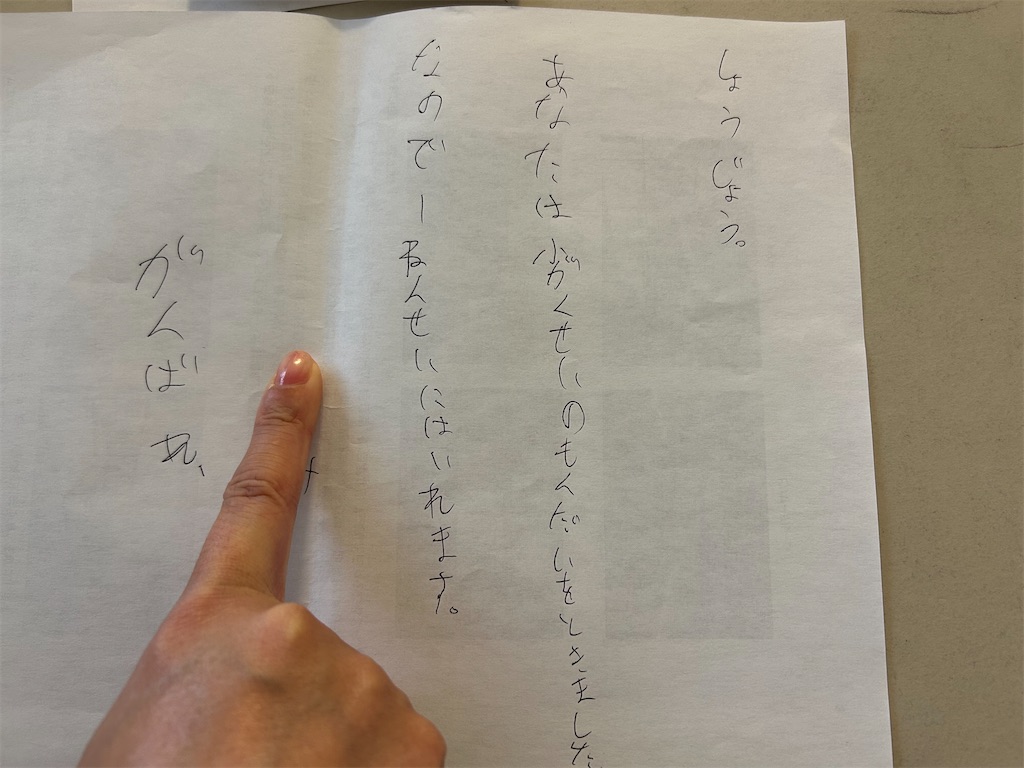 しょうじょう。
あなたは小がくせいのもんだいをときました
なので1ねんせいにはいれます。
がんばれ、